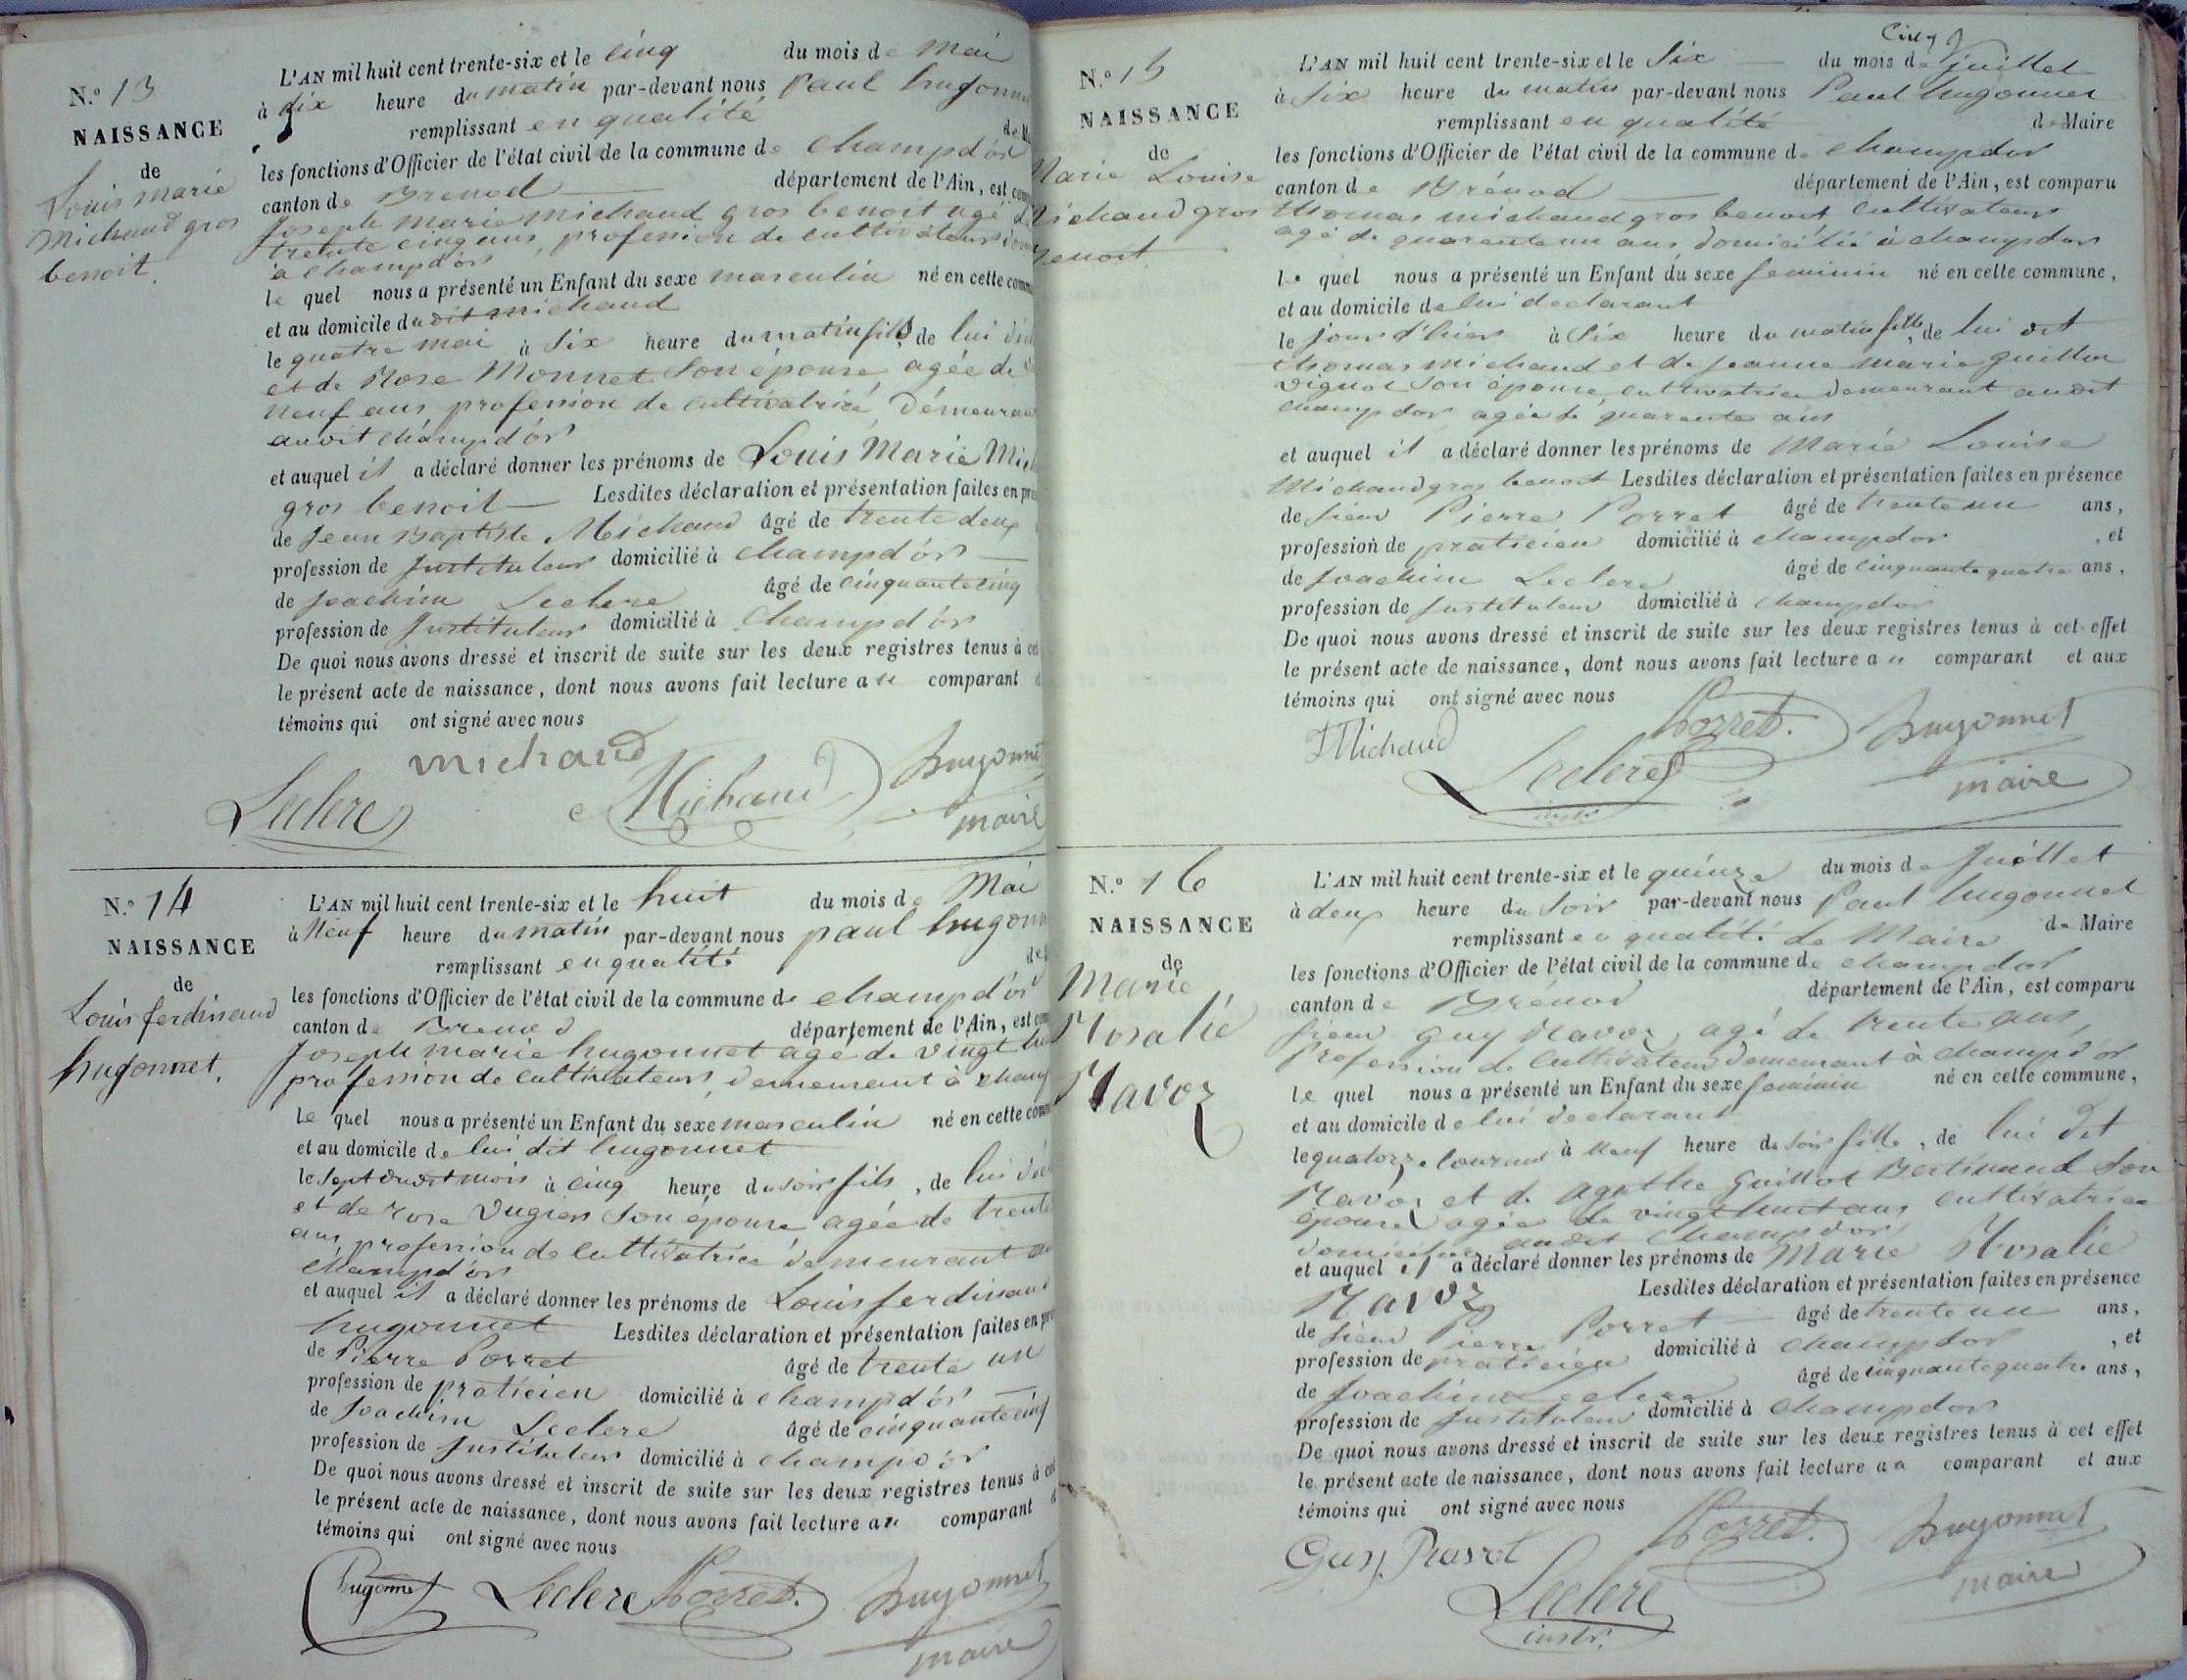 N.º 13
NAISSANCE
de
Louis marie
Michaud gros
benoit.
L'AN mil huit cent trente-six et le cinq du mois de mai
à dix heure du matin par-devant nous Paul hugonn
remplissant en qualité de M
les fonctions d'Officier de l'état civil de la commune de champd'or
canton de Brenod département de l'Ain, est com
Joseph marie michaud gros benoit agé d
trente cinq ans, profession de cultivateur
à champd'or
le quel nous a présenté un Enfant du sexe masculin né en cette comm
et au domicile dudit michaud
le quatre mai à six heure du matin fils de lui
et de Rose Monnet son épouse, agée de
neuf ans profession de cultivatrice, démeuran
audit champd'or
et auquel il a déclaré donner les prénoms de Louis Marie Mich
gros benoit Lesdites déclaration et présentation faites en pr
de Jean Baptiste Michaud âgé de trente deux
profession de Instituteur domicilié à champd'or
de Joachim Leclerc âgé de cinquante cinq
profession de Instituteur domicilié à champd'or
De quoi nous avons dressé et inscrit de suite sur les deux registres tenus à cet
le présent acte de naissance, dont nous avons fait lecture au comparant
témoins qui ont signé avec nous
michaud
Leclerc Michaud hugonnet
maire
N.º 14
NAISSANCE
de
Louis ferdinand
hugonnet.
L'AN mil huit cent trente-six et le huit du mois de Mai
à Neuf heure du matin par-devant nous paul hugonn
remplissant en qualité de
les fonctions d'Officier de l'état civil de la commune de champd'or
canton de Brenod département de l'Ain, est com
Joseph marie hugonnet agé de vingt
profession de cultivateur, demeurant à champ
le quel nous a présenté un Enfant du sexe masculin né en cette comm
et au domicile de lui dit hugonnet
le sept dudit mois à cinq heure du soir fils, de lui
et de rose Vugier son épouse, agée de trente
ans, profession de cultivatrice demeurant au
champd'or
et auquel il a déclaré donner les prénoms de Louis ferdinand
hugonnet Lesdites déclaration et présentation faites en pr
de Pierre Porret âgé de trente un
profession de praticien domicilié à champd'or
de Joachim Leclerc âgé de cinquante cinq
profession de Instituteur domicilié à champd'or
De quoi nous avons dressé et inscrit de suite sur les deux registres tenus à cet
le présent acte de naissance, dont nous avons fait lecture au comparant
témoins qui ont signé avec nous
hugonnet Leclerc Porret. hugonnet
maire
N.º 15
NAISSANCE
de
Marie Louise
Michaud gros
benoit
L'AN mil huit cent trente-six et le Six du mois de juillet
à Six heure du matin par-devant nous Paul hugonnet
remplissant en qualité de Maire
les fonctions d'Officier de l'état civil de la commune de champdor
canton de Brénod département de l'Ain, est comparu
thomas michaud gros benoit, cultivateur
agé de quarante un ans domicilié à champdor
le quel nous a présenté un Enfant du sexe feminin né en cette commune,
et au domicile de lui declarant
le jour d'hier à Six heure du matin fille, de lui dit
thomas michaud et de jeanne marie guillon
vignot son épouse, cultivatrice demeurant audit
champdor agée de quarante ans
et auquel il a déclaré donner les prénoms de Marie Louise
Michaud gros benoit Lesdites déclaration et présentation faites en présence
de sieur Pierre Porret âgé de trente un ans,
profession de praticien domicilié à champdor, et
de Joachim Leclerc âgé de cinquante quatre ans,
profession de Instituteur domicilié à champdor
De quoi nous avons dressé et inscrit de suite sur les deux registres tenus à cet effet
le présent acte de naissance, dont nous avons fait lecture au comparant et aux
témoins qui ont signé avec nous
TMichaud Porret. hugonnet
Leclerc maire
instr.
N.º 16
NAISSANCE
de
Marie
Rosalie
Ravoz
L'AN mil huit cent trente-six et le quinze du mois de Juillet
à deux heure du Soir par-devant nous Paul hugonnet
remplissant en qualité de Maire de Maire
les fonctions d'Officier de l'état civil de la commune de champdor
canton de Brénod département de l'Ain, est comparu
sieur guy Ravoz, agé de trente ans,
Profession de Cultivateur demeurant à champd'or
le quel nous a présenté un Enfant du sexe feminin né en cette commune,
et au domicile de lui declarant
le quatorze courant à neuf heure du soir fille, de lui dit
Ravoz et de agathe guillot Bertinand son
épouse agée de vingt huit ans cultivatrice
domiciliée audit champdor
et auquel il a déclaré donner les prénoms de Marie Rosalie
Ravoz Lesdites déclaration et présentation faites en présence
de sieur Pierre Porret âgé de trente un ans,
profession de praticien domicilié à champdor, et
de Joachim Leclerc âgé de cinquante quatre ans,
profession de Instituteur domicilié à champdor
De quoi nous avons dressé et inscrit de suite sur les deux registres tenus à cet effet
le présent acte de naissance, dont nous avons fait lecture au comparant et aux
témoins qui ont signé avec nous
Guy. Ravot Porret. hugonnet
Leclerc maire
instr.